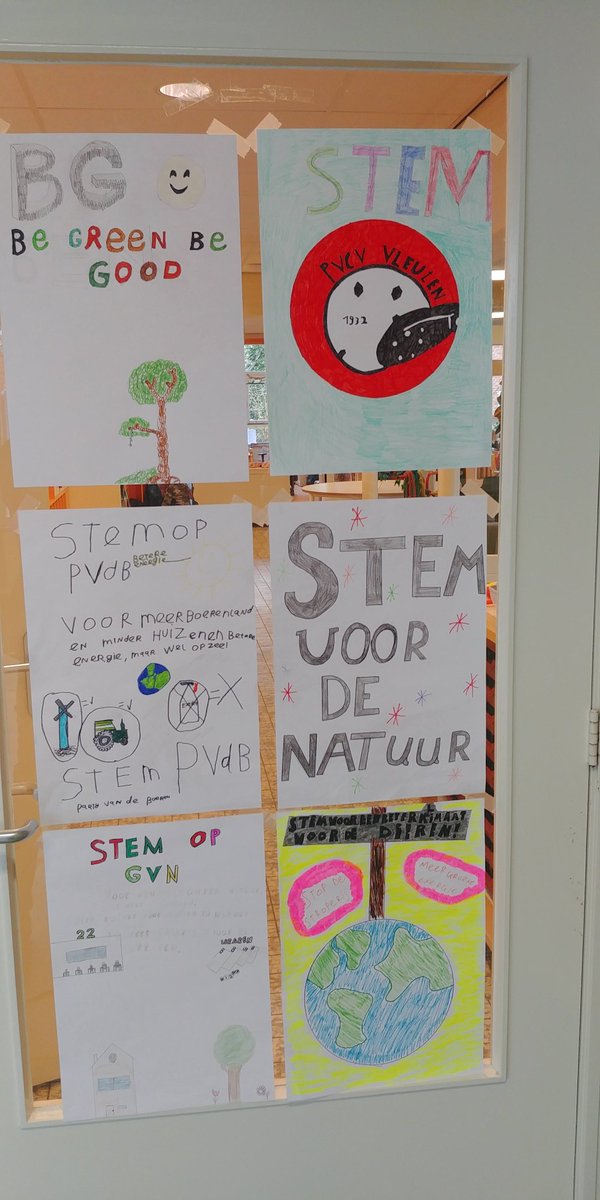 BG
Be GReen Be
GOOD
STEM
PVCV VLEUTEN
1932
STemOP
PVdB
BeTeRe
energie
VOOR meer Boerenland
en minder HUIZen en Betere
energie, maar wel op zeel
=V
=V
=X
STEm PVdB
Partij van de Boeren
STEM
VOOR
DE
NATUUR
STEM OP
GVN
22
STEM VOOR EEN BETER KLIMAAT
VOOR DE DIEREN!
STOP DE
MEER GROENE